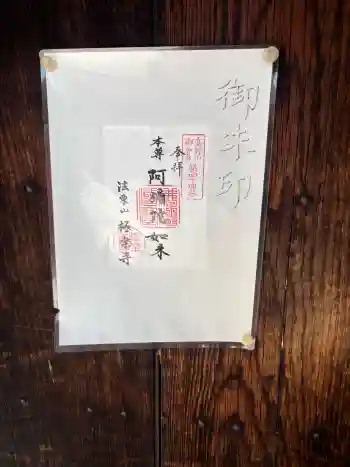 御朱印
奉拝
本尊 阿弥陀如来
法東山 極楽寺